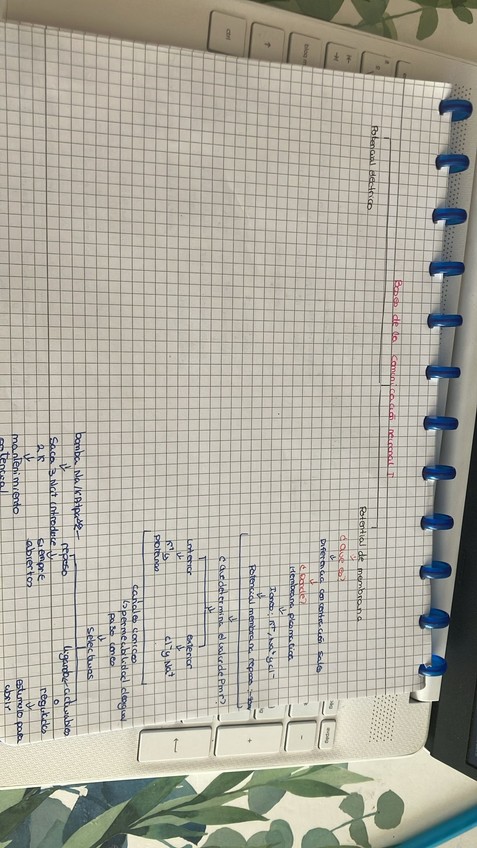 Bases de la comunicación neuronal I
Potencial eléctrico
Potencial de membrana
¿Qué es?
Diferencia concentración sales
¿Dónde?
Membrana plasmática
Iones: K⁺, Na⁺ y Cl⁻
Potencial membrana reposo
¿Qué determina el valor de Pmr?
Interior
Exterior
K⁺ y
proteínas
Cl⁻ y Na⁺
canales iónicos
permeabilidad
paso iones
selectivos
bomba Na/K ATPasa
reposo
ligando-activables
Saca 3 Na⁺ introduce
2 K
siempre
abiertos
o
regulados
mantenimiento
estímulo para
abrir
potencial
ctrl